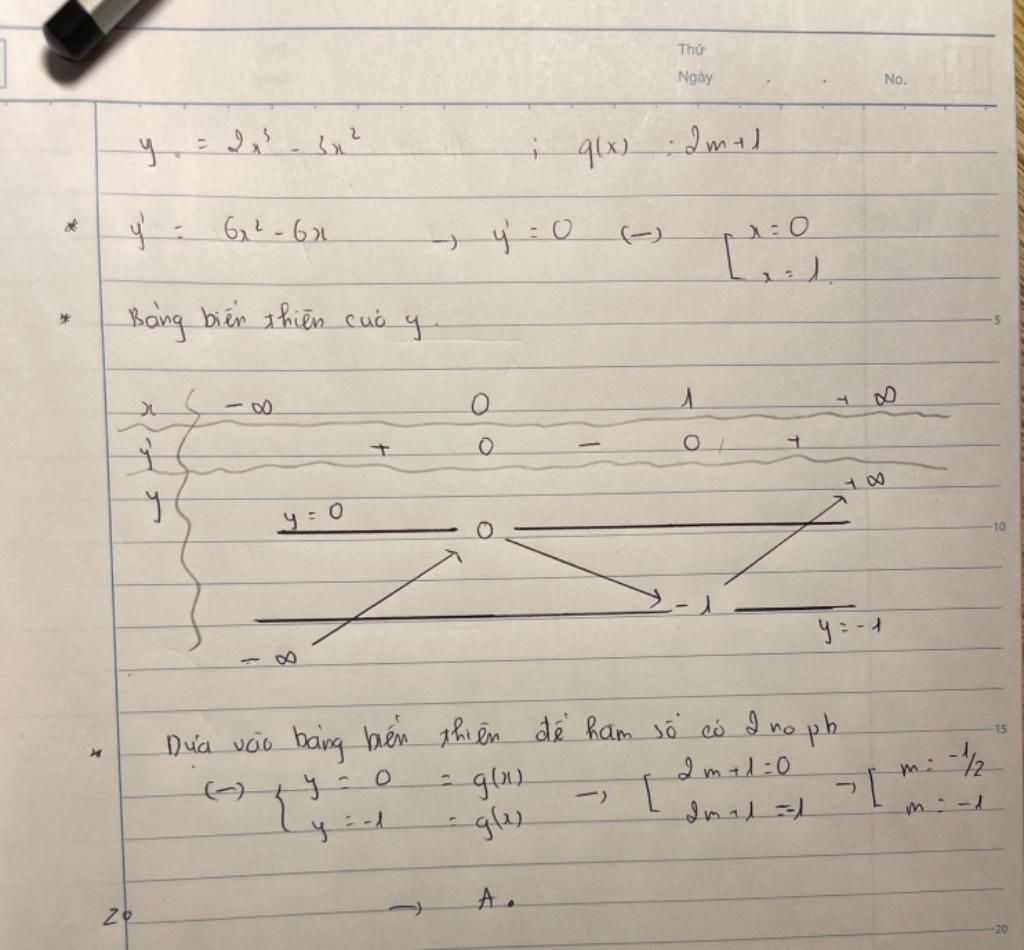 Thứ
Ngày . . No.
y = 2x³ - 3x² ; g(x) : 2m+1
* y' = 6x² - 6x → y' = 0 (→) [ x = 0
x = 1.
* Bảng biến thiên của y.
5
x -∞ 0 1 +∞
y' + 0 - 0 +
y +∞
y = 0 0
10
-1
y = -1
-∞
* Dựa vào bảng biến thiên để hàm số có 2 no pb
15
(→) { y = 0 = g(x) → [ 2m+1=0 → [ m = -1/2
y = -1 = g(x) 2m+1 =-1 m = -1
→ A.
20
20